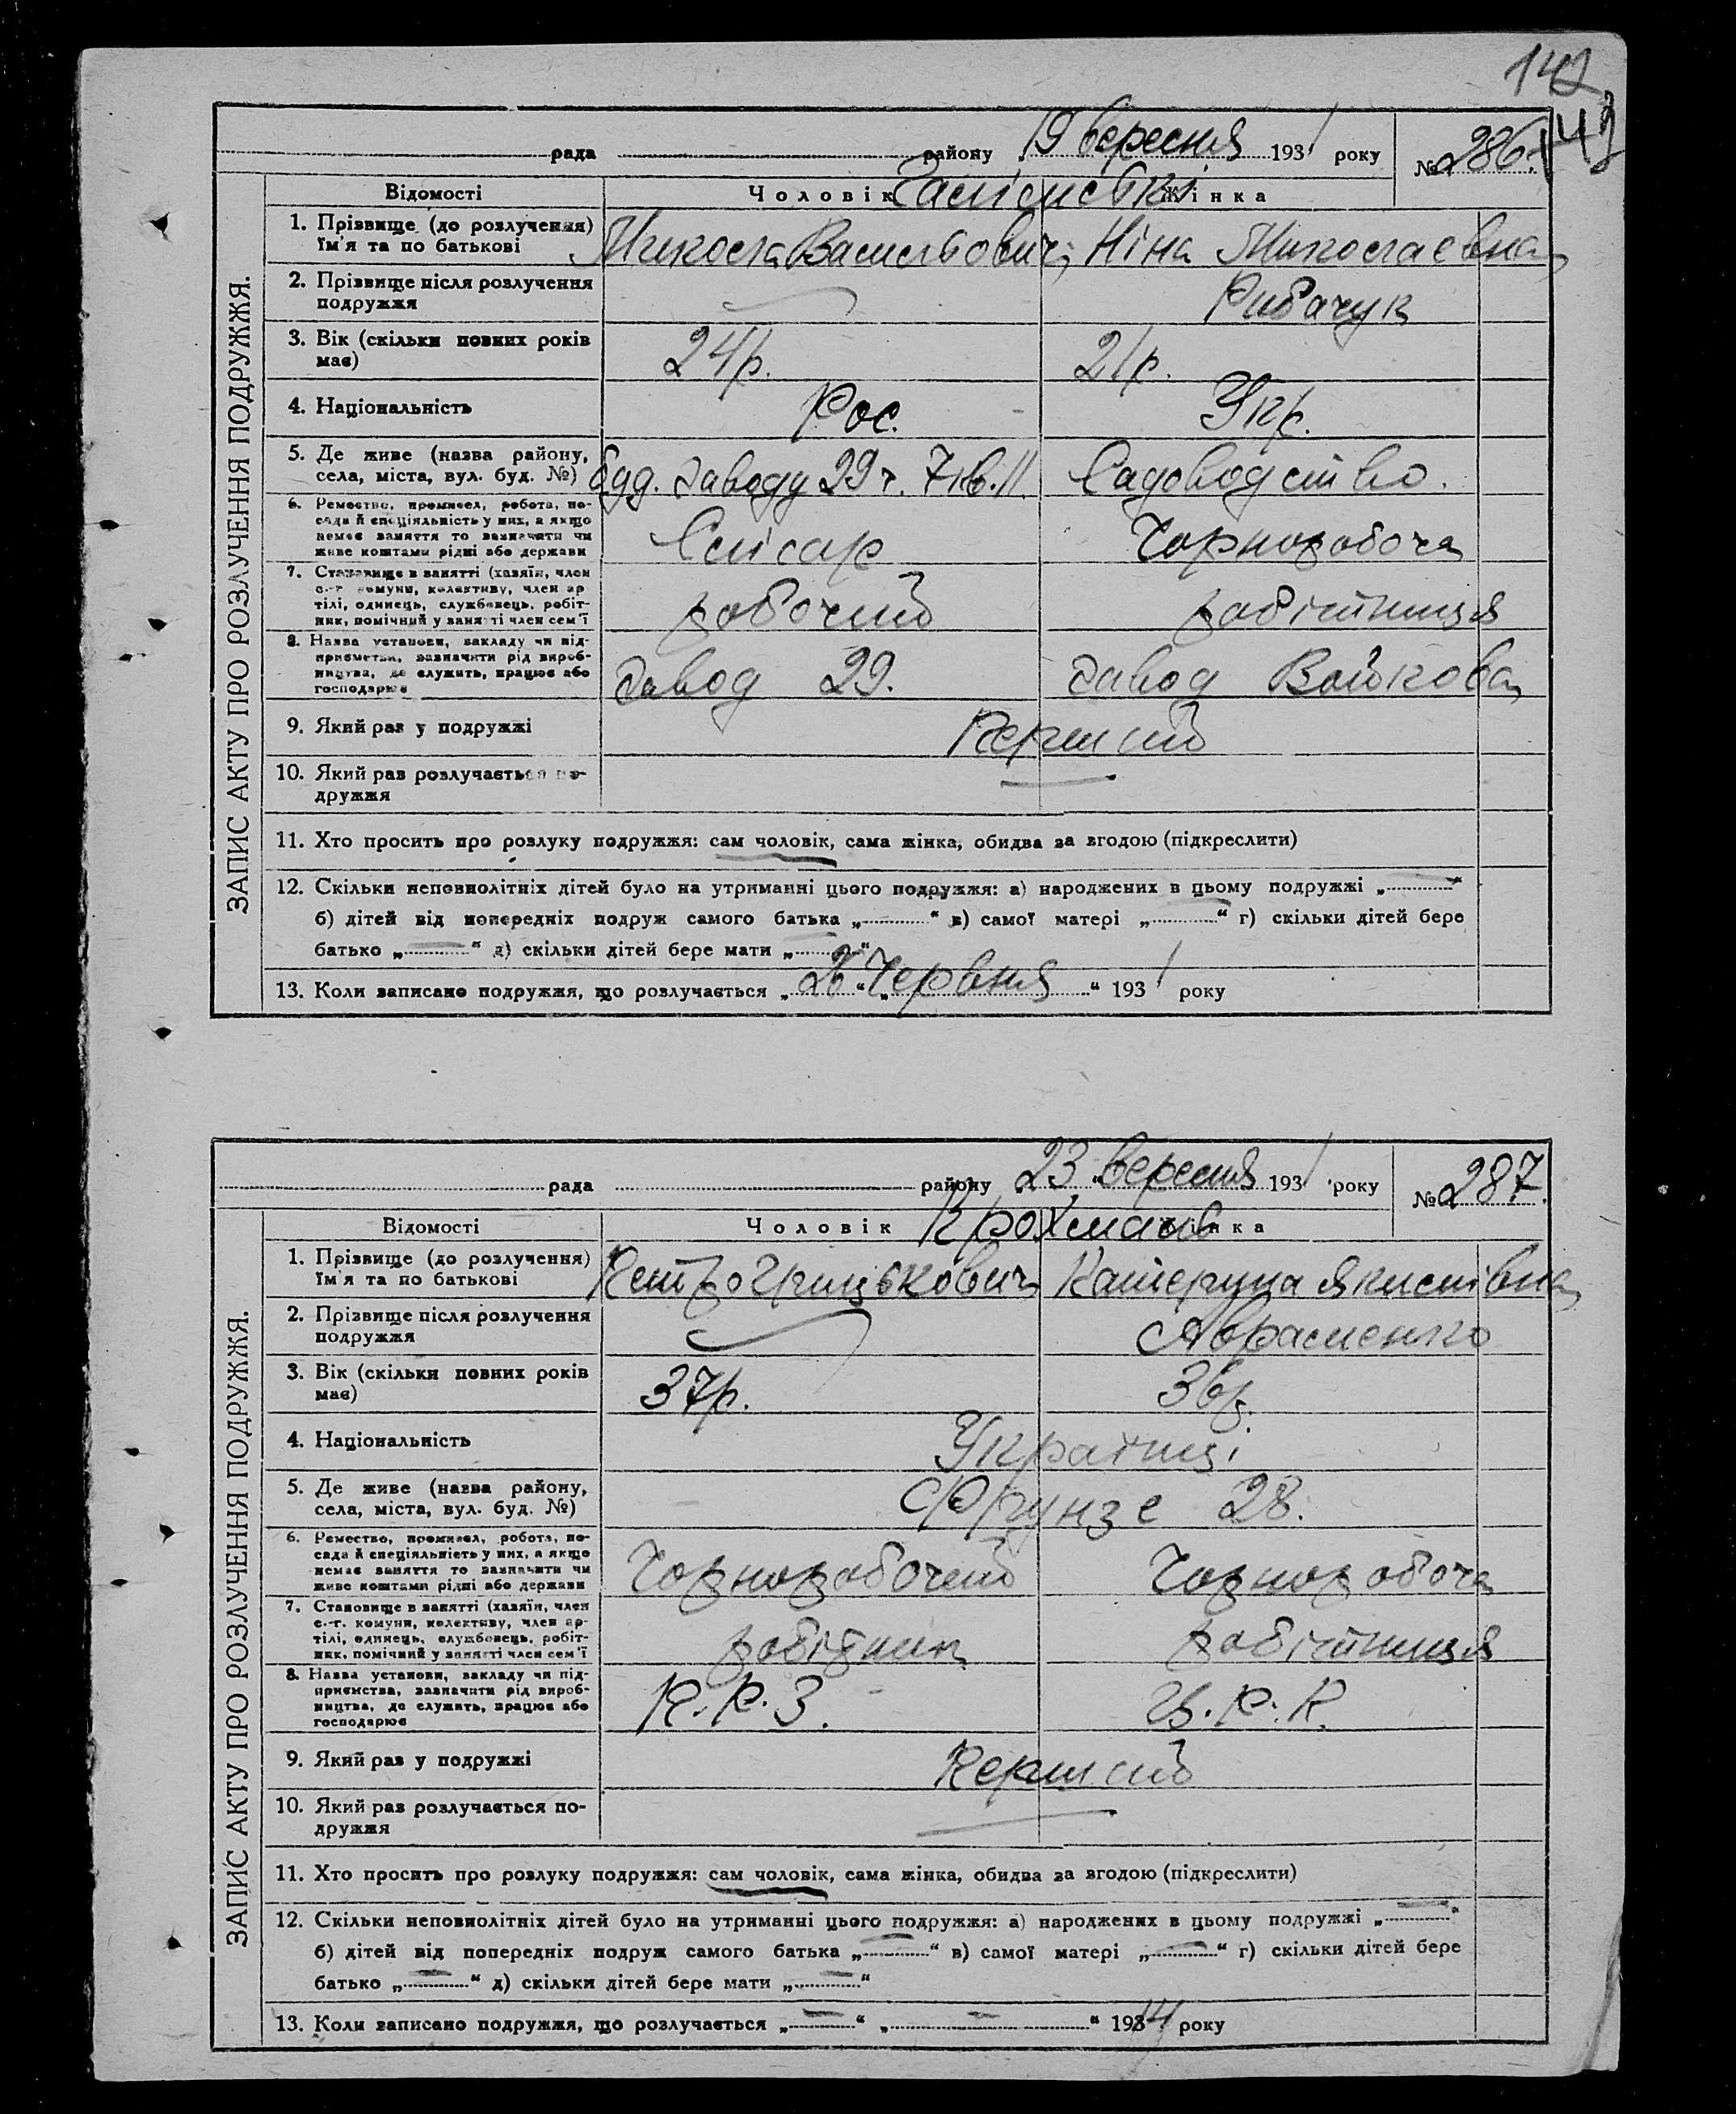 142
143
рада району 19 вересня 1931 року № 286.
Відомості Чоловік Жінка
1. Прізвище (до розлучення) ім'я та по батькові
Микола Васильович Ніна Миколаєвна
2. Прізвище після розлучення подружжя
Рибачук
3. Вік (скільки повних років має)
24 р. 21 р.
4. Національність
Рос. Укр.
5. Де живе (назва району, села, міста, вул. буд. №)
буд. заводу 29 Садоводство.
6. Ремество, промисел, робота, посада й спеціяльність у них, а якщо немає заняття то зазначити чи живе коштами рідні або держави
Слісар Чорноробоча
7. Становище в занятті (хазяїн, член с.-г комуни, колективу, член артілі, одинець, службовець, робітник, помічний у занятті член сем'ї
робочий робітниця
8. Назва установи, закладу чи підприємства, зазначити рід виробництва, де служить, працює або господарює
завод 29. завод Войкова
9. Який раз у подружжі
Перший
10. Який раз розлучається подружжя
11. Хто просить про розлуку подружжя: сам чоловік, сама жінка, обидва за згодою (підкреслити)
12. Скільки неповнолітніх дітей було на утриманні цього подружжя: а) народжених в цьому подружжі „ “
б) дітей від попередніх подруж самого батька „ “ в) самої матері „ “ г) скільки дітей бере
батько „ “ д) скільки дітей бере мати „ “
13. Коли записано подружжя, що розлучається „26“ „Червня“ 1931 року
ЗАПИС АКТУ ПРО РОЗЛУЧЕННЯ ПОДРУЖЖЯ.
рада району 23 вересня 1931 року № 287.
Відомості Чоловік Жінка
Крохмаль
1. Прізвище (до розлучення) ім'я та по батькові
Петро Грицькович Катерина Якимівна
2. Прізвище після розлучення подружжя
Авраменко
3. Вік (скільки повних років має)
37 р. 36 р.
4. Національність
Українці
5. Де живе (назва району, села, міста, вул. буд. №)
Фрунзе 28.
6. Ремество, промисел, робота, посада й спеціяльність у них, а якщо немає заняття то зазначити чи живе коштами рідні або держави
Чорноробочий Чорноробоча
7. Становище в занятті (хазяїн, член с.-г. комуни, колективу, член артілі, одинець, службовець, робітник, помічний у занятті член сем'ї
робітник робітниця
8. Назва установи, закладу чи підприємства, зазначити рід виробництва, де служить, працює або господарює
Ц.Р.К.
9. Який раз у подружжі
Перший
10. Який раз розлучається подружжя
11. Хто просить про розлуку подружжя: сам чоловік, сама жінка, обидва за згодою (підкреслити)
12. Скільки неповнолітніх дітей було на утриманні цього подружжя: а) народжених в цьому подружжі „ — “
б) дітей від попередніх подруж самого батька „ — “ в) самої матері „ — “ г) скільки дітей бере
батько „ — “ д) скільки дітей бере мати „ — “
13. Коли записано подружжя, що розлучається „ — “ „ — “ 1914 року
ЗАПИС АКТУ ПРО РОЗЛУЧЕННЯ ПОДРУЖЖЯ.